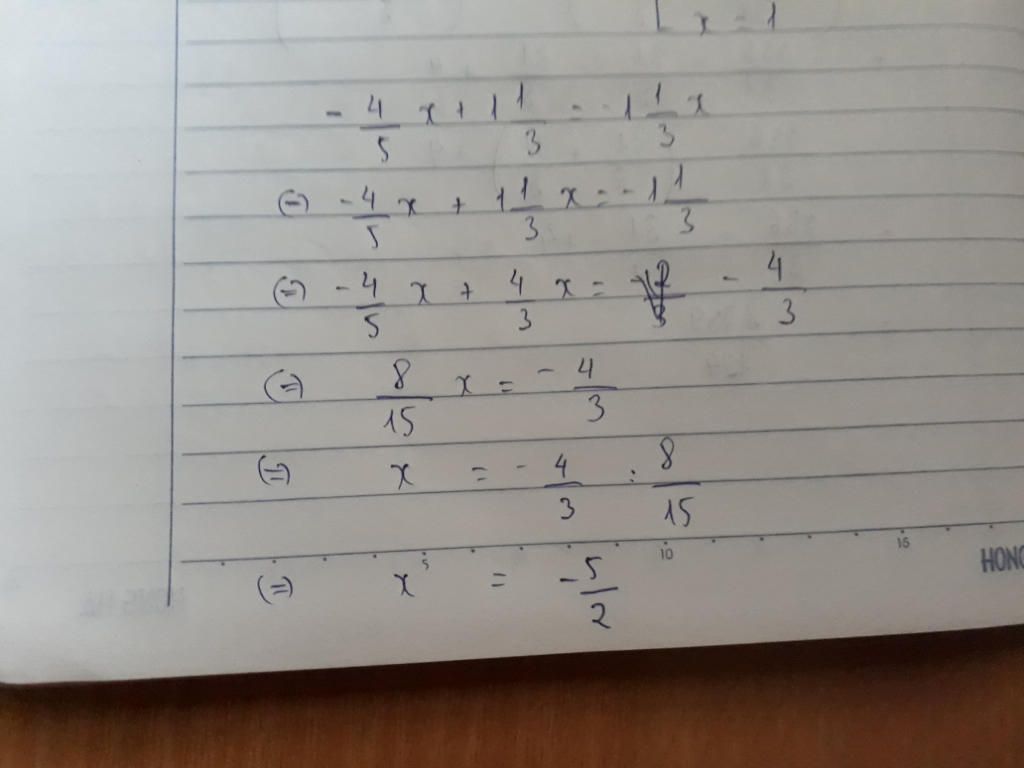 x = 1
- 4/5 x + 1 1/3 = - 1 1/3 x
(=) - 4/5 x + 1 1/3 x = - 1 1/3
(=) - 4/5 x + 4/3 x = - 4/3
(=) 8/15 x = - 4/3
(=) x = - 4/3 : 8/15
5 10 15
(=) x = - 5/2